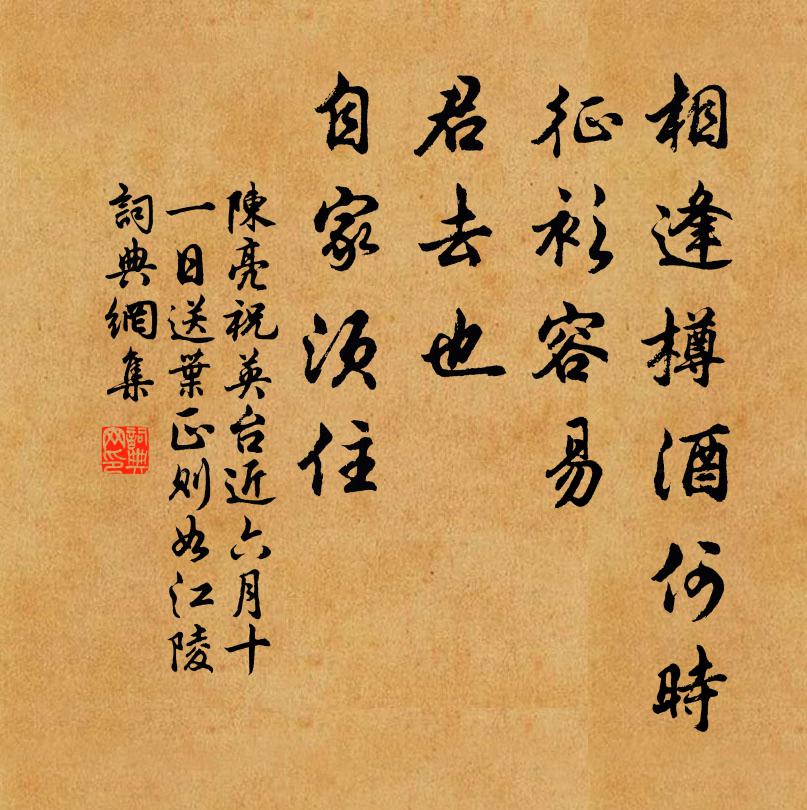 相逢樽酒何時
征衫容易
君去也
自家須住
陳亮祝英台近六月十
一日送葉正則如江陵
詞典網集
詞典
网印